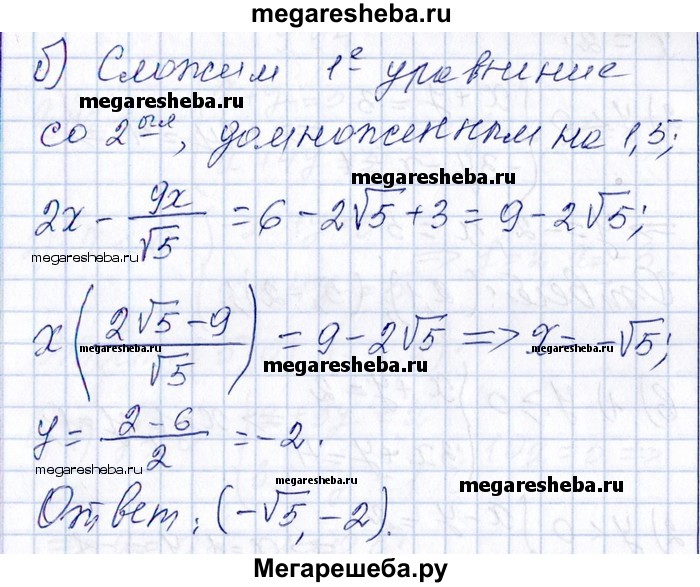 megaresheba.ru
б) Сложим 1е уравнение
megaresheba.ru
со 2ым, домноженным на 1,5;
megaresheba.ru
2x - 9x/√5 = 6 - 2√5 + 3 = 9 - 2√5;
megaresheba.ru
x((2√5 - 9)/√5) = 9 - 2√5 => x = -√5;
megaresheba.ru megaresheba.ru megaresheba.ru
y = (2 - 6)/2 = -2.
megaresheba.ru
megaresheba.ru
megaresheba.ru
Ответ: (-√5, -2).
megaresheba.ru
Мегарешеба.ру